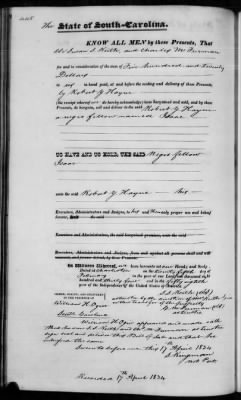 The State of South-Carolina.
KNOW ALL MEN by these Presents, That
We Susan S. Keith, and Charles M. Furman
for and in consideration of the sum of Five hundred and Twenty
Dollars
to us in hand paid, at and before the sealing and delivery of these Presents,
by Robert Y. Hayne
(the receipt whereof do hereby acknowledge) have bargained and sold, and by these
Presents, do bargain, sell and deliver to the said Robert Y. Hayne
a negro fellow named Isaac
TO HAVE AND TO HOLD, THE SAID Negro fellow
Isaac
unto the said Robert Y. Hayne his
Executors, Administrators and Assigns, to his and their only proper use and behoof
forever. And
Executors, Administrators and Assigns, the said bargained premises, unto the said
Executors, Administrators and Assigns, from and against all persons shall and will
warrant, and forever defend, by these Presents.
In Witness Whereof, we have hereunto set our Hands and Seals
Dated at Charleston on the Twenty eighth day of
February in the year of our Lord one thousand eight
hundred and thirty four and in the fifty eighth
year of the Independence of the United States of America.
SIGNED, SEALED, AND DELIVERED
IN THE PRESENCE OF
William H.
S. S. Keith
C. M. Furman
William H. appeared and made oath
that
sign seal and deliver this Bill of Sale and that he
witnessed the same
Sworn to before me this 17 April 1834
Recorded 17th April 1834